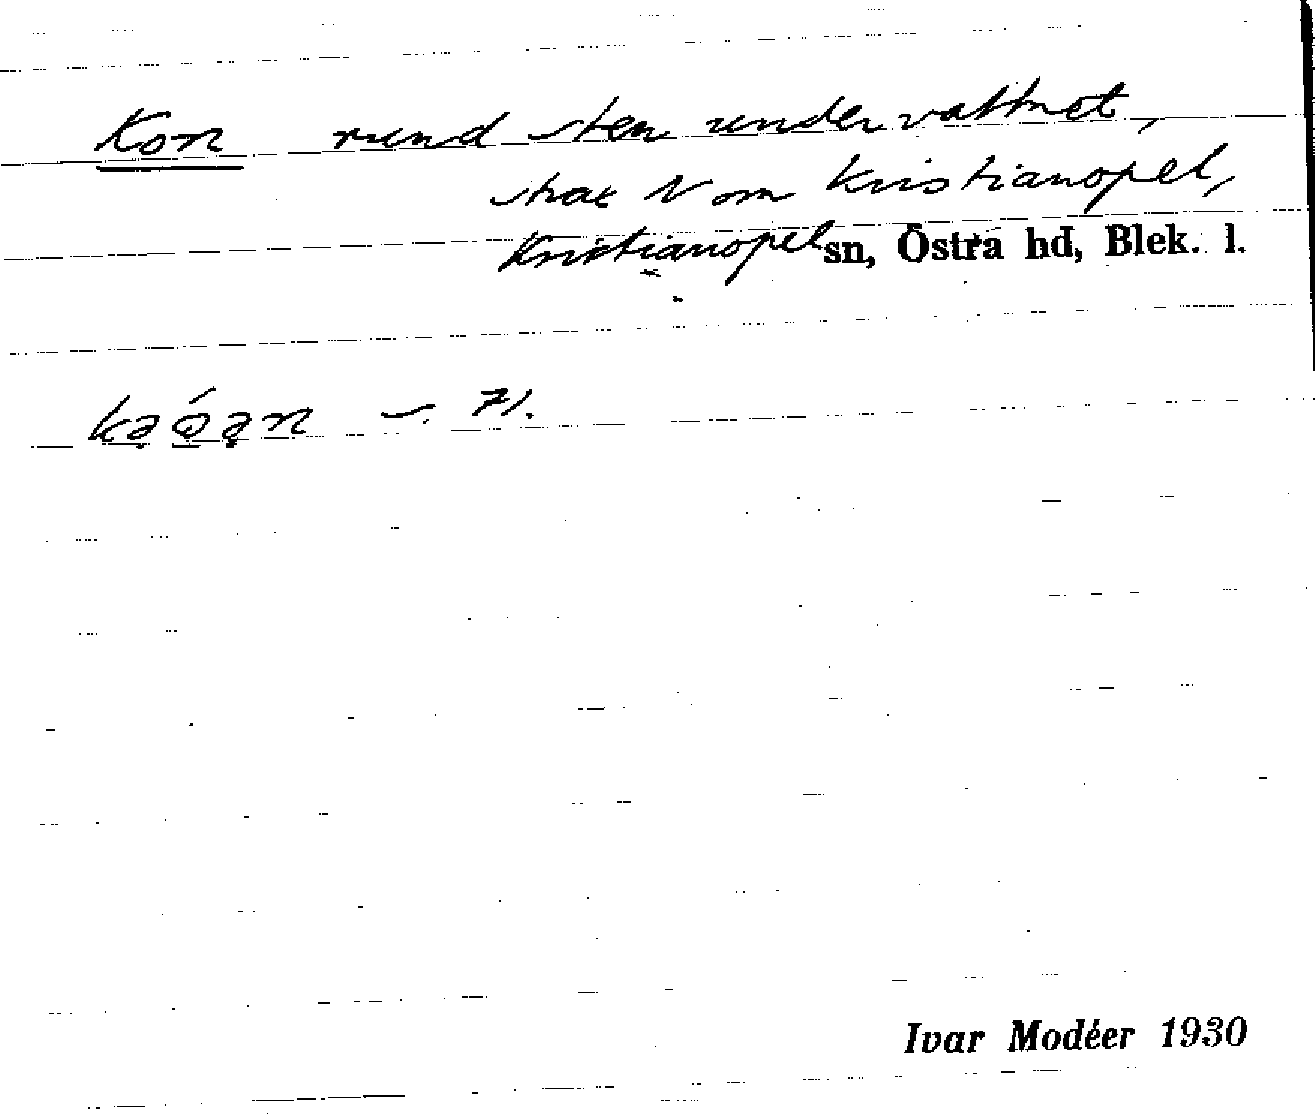 Kon rund sten under vattnet,
strax N om Kristianopel,
Kristianopel sn, Östra hd, Blek. l.
Ivar Modéer 1930